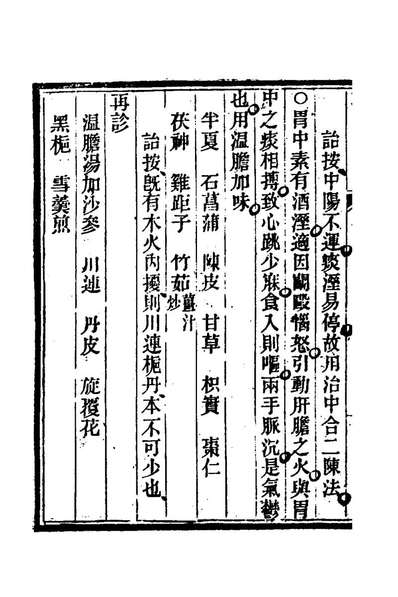 詒按中陽不運痰溼易停故用治中合二陳法
〇胃中素有酒溼適因鬭毆惱怒引動肝膽之火與胃
中之痰相摶致心跳少寐食入則嘔兩手脈沉是氣鬱
也用温膽加味
半夏 石菖蒲 陳皮 甘草 枳實 棗仁
茯神 雞距子 竹茹薑汁炒
詒按既有木火内擾則川連梔丹本不可少也
再診
温膽湯加沙參 川連 丹皮 旋覆花
黑梔 雪羹煎